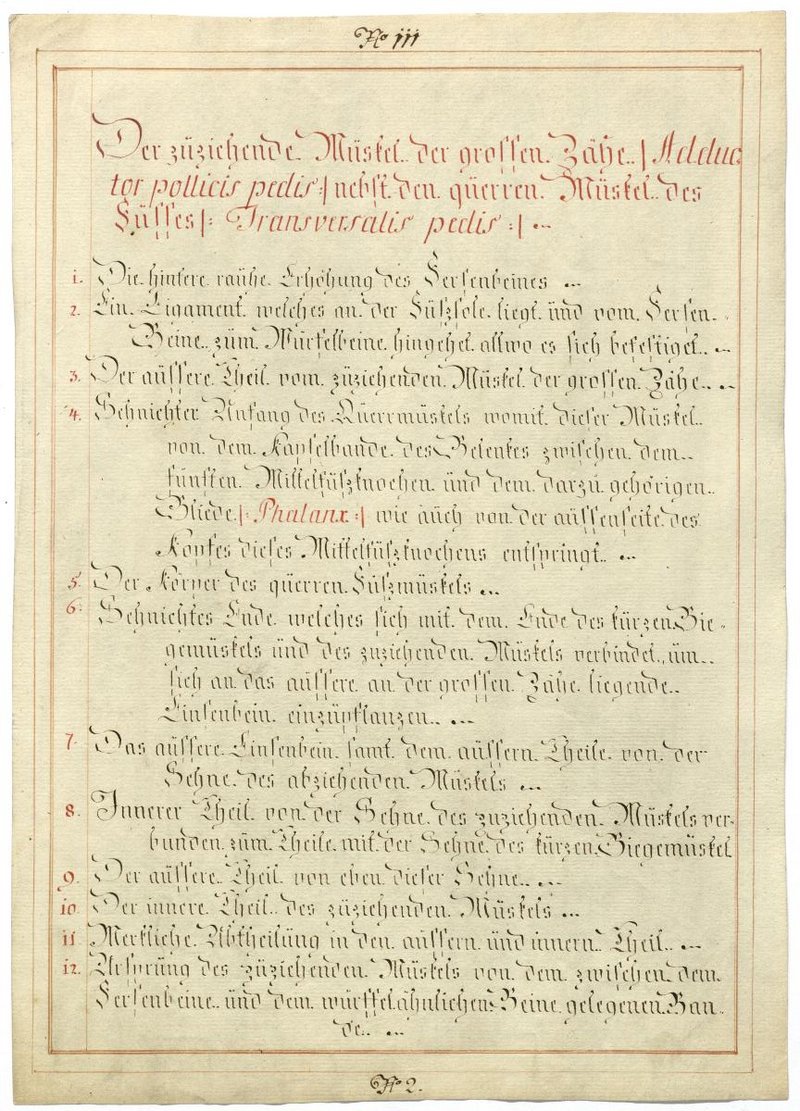 No III
Der züziehende. Müskel. der grossen. Zähe. |: Adduc-
tor pollicis pedis :| nebst. den. qüerren. Müskel. des
Füsses |: Transversalis pedis :|
1. Die hintere raühe. Erhöhung des Fersenbeines
2. Ein. Ligament. welches an der Füszsole. liegt. ünd vom. Fersen.
Beine. züm. Würfelbeine. hingehet. allwo es sich befestiget.
3. Der aüssere. Theil. vom. züziehenden. Müskel. der grossen. Zähe.
4. Sehnichter Anfang des Qüerrmüskels womit. dieser Müskel.
von. dem. Kapselbande. des Gelenkes zwischen. dem.
fünften. Mittelfüszknochen. ünd dem. darzü. gehörigen.
Gliede. |: Phalanx :| wie aüch von der aüssenseite des
Kopfes dieses Mittelfüszknochens entspringt.
5. Der Körper des qüerren. Füszmüskels
6. Sehnichtes Ende. welches sich mit. dem. Ende des kürzen Bie-
gemüskels ünd des züziehenden. Müskels verbindet., üm.
sich an das aüssere. an der grossen. Zähe. liegende.
Linsenbein. einzüpflanzen.
7. Das aüssere. Linsenbein. samt. dem. aüssern. Theile. von. der
Sehne. des abziehenden. Müskels
8. Innerer Theil. von der Sehne. des züziehenden. Müskels ver-
bünden. züm. Theile. mit. der Sehne. des kürzen. Biegemüskel
9. Der aüssere. Theil. von eben. dieser Sehne.
10 Der innere. Theil. des züziehenden. Müskels
11 Merkliche. Abtheilüng in den. aüssern. ünd innern. Theil.
12. Ursprüng des züziehenden. Müskels von. dem. zwischen. dem.
Fersenbeine. ünd dem. würffelähnlichen. Beine. gelegenen. Ban-
de.
No 2.